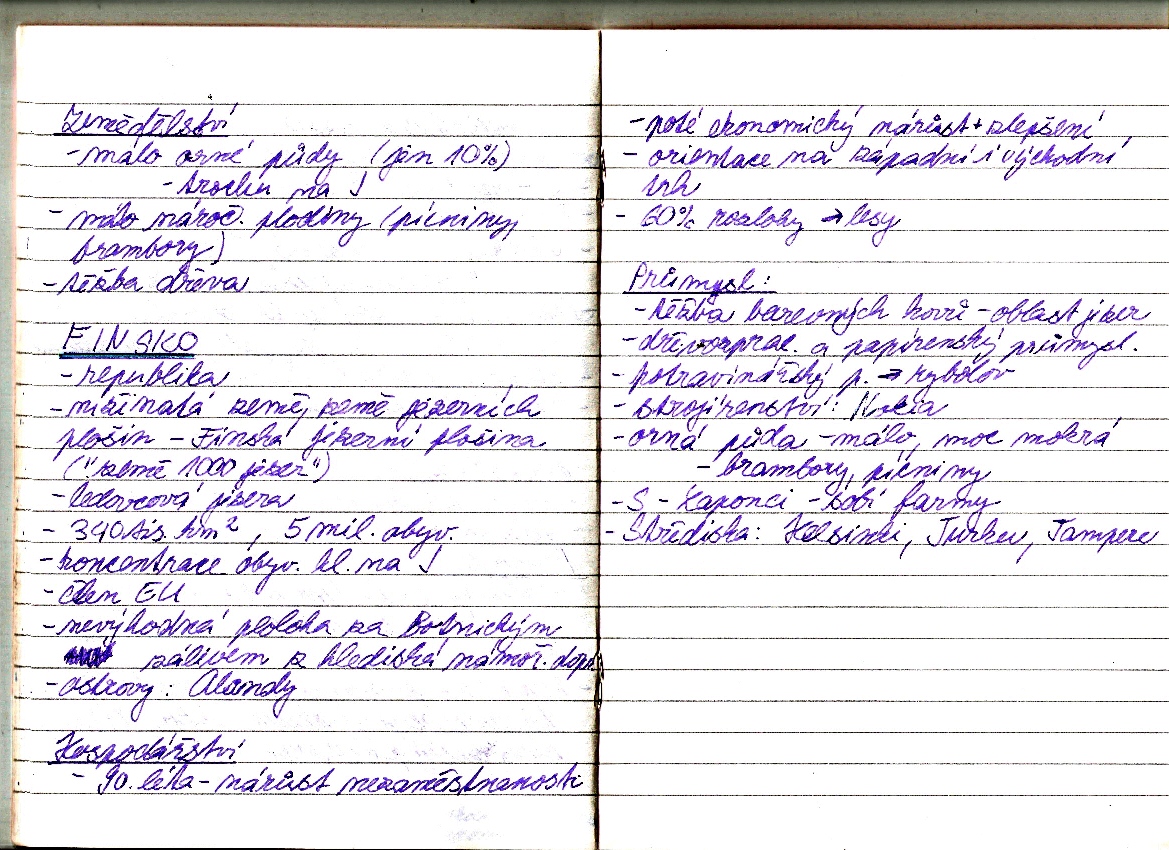 Zemědělství
- málo orné půdy (jen 10%)
- trochu na J
- málo nároč. plodiny (pícniny,
brambory)
- těžba dřeva
FINSKO
- republika
- nížinatá země, země jezerních
plošin - Finská jezerní plošina
("země 1000 jezer")
- ledovcová jezera
- 340 tis. km², 5 mil. obyv.
- koncentrace obyv. hl. na J
- člen EU
- nevýhodná poloha za Botnickým
zálivem z hlediska námoř. dopr
- ostrovy: Alandy
Hospodářství
- 90. léta - nárůst nezaměstnanosti
- poté ekonomický nárůst + zlepšení
- orientace na západní i východní
trh
- 60% rozlohy → lesy
Průmysl:
- těžba barevných kovů - oblast jezer
- dřevozprac. a papírenský průmysl.
- potravinářský p. → rybolov
- strojírenství: Nokia
- orná půda - málo, moc mokrá
- brambory, pícniny
- S - Laponci - sobí farmy
- Střediska: Helsinki, Turku, Tampere